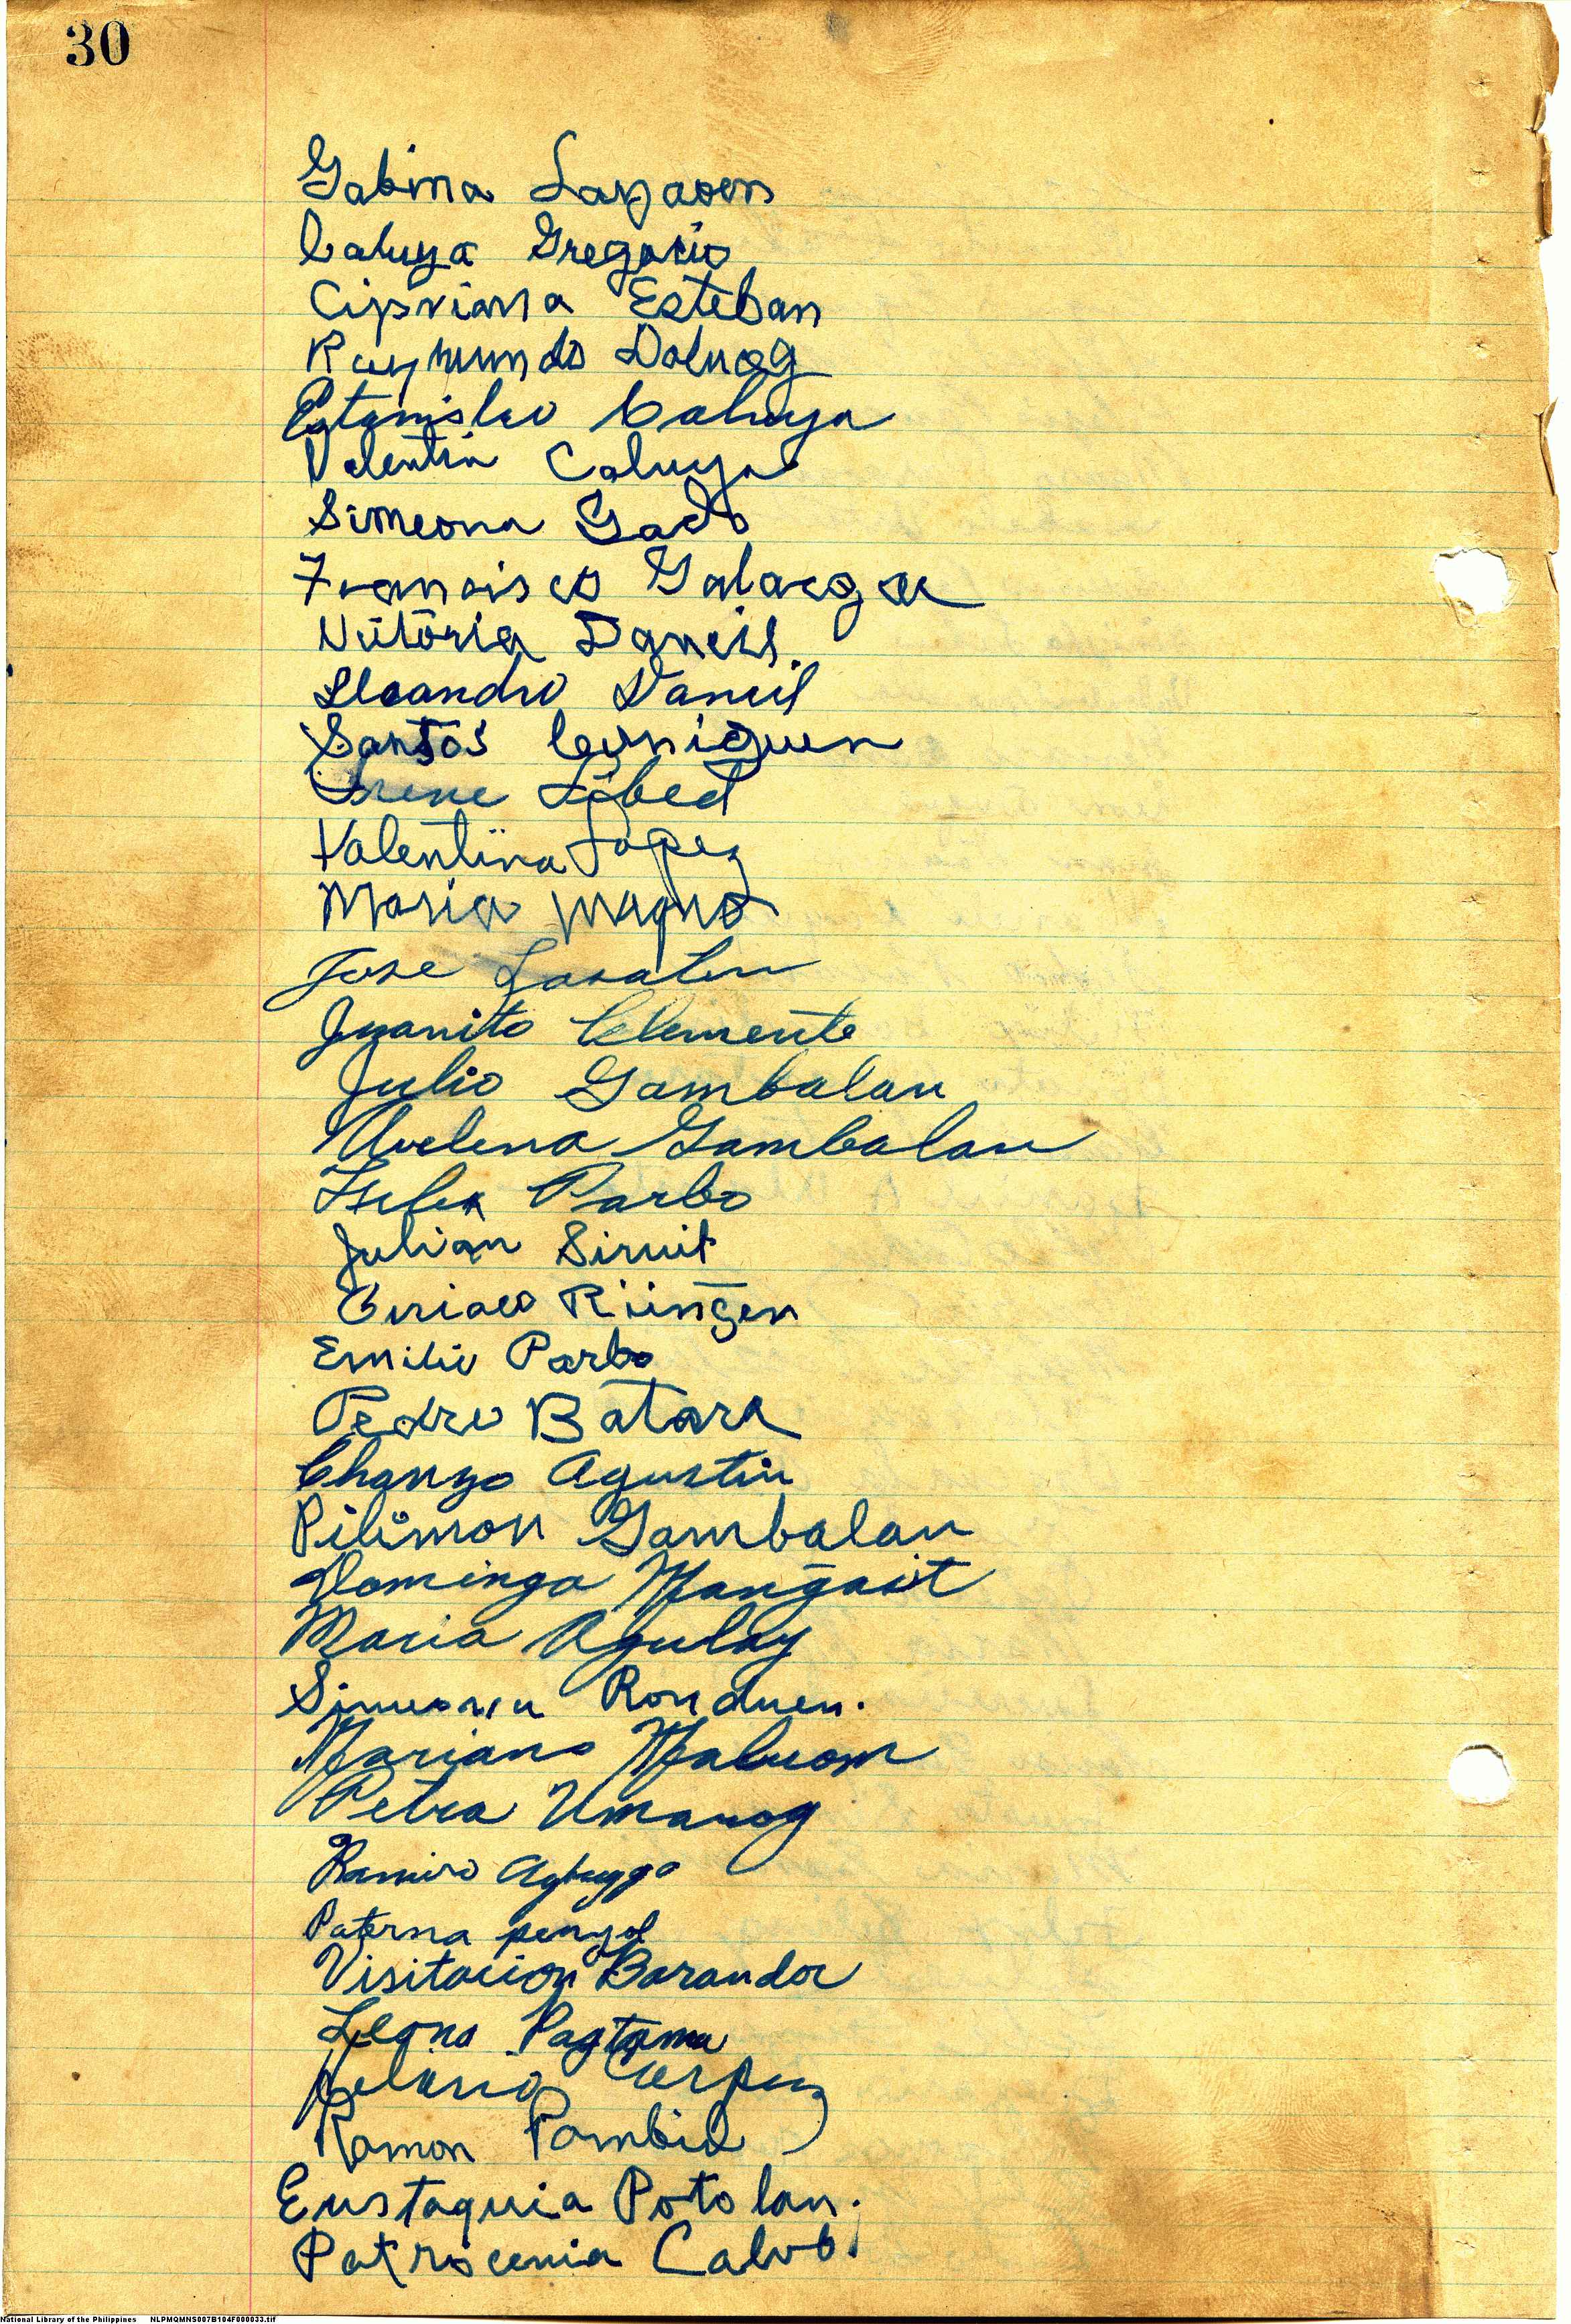 30
Gabina
Caluya Gregorio
Cipriana Esteban
Raymundo Daluog
Estanislao Caluya
Valentin Caluya
Simeona Gado
Francisco
Vittoria Daniel.
Lleandro Daniel
Santos
Irene Libed
Valentina Lopez
Maria Magno
Jose Lasaten
Juanito Clemente
Julio Gambalan
Avelena Gambalan
Parbo
Julian Siruit
Ciriaco
Emilio Parbo
Pedro Batara
Agustin
Pilimon Gambalan
Domingo Mangait
Maria Agulay
Ronduen.
Mariano Maluom
Petra Umanog
Ramiro
Paterna
Visitacion Barandor
Leona Pagtama
Corpuz
Ramon Pambid
Eustaquia Potolan.
Patrocenia Calub.
National Library of the Philippines NLPMQMNS007B104F000033.tif